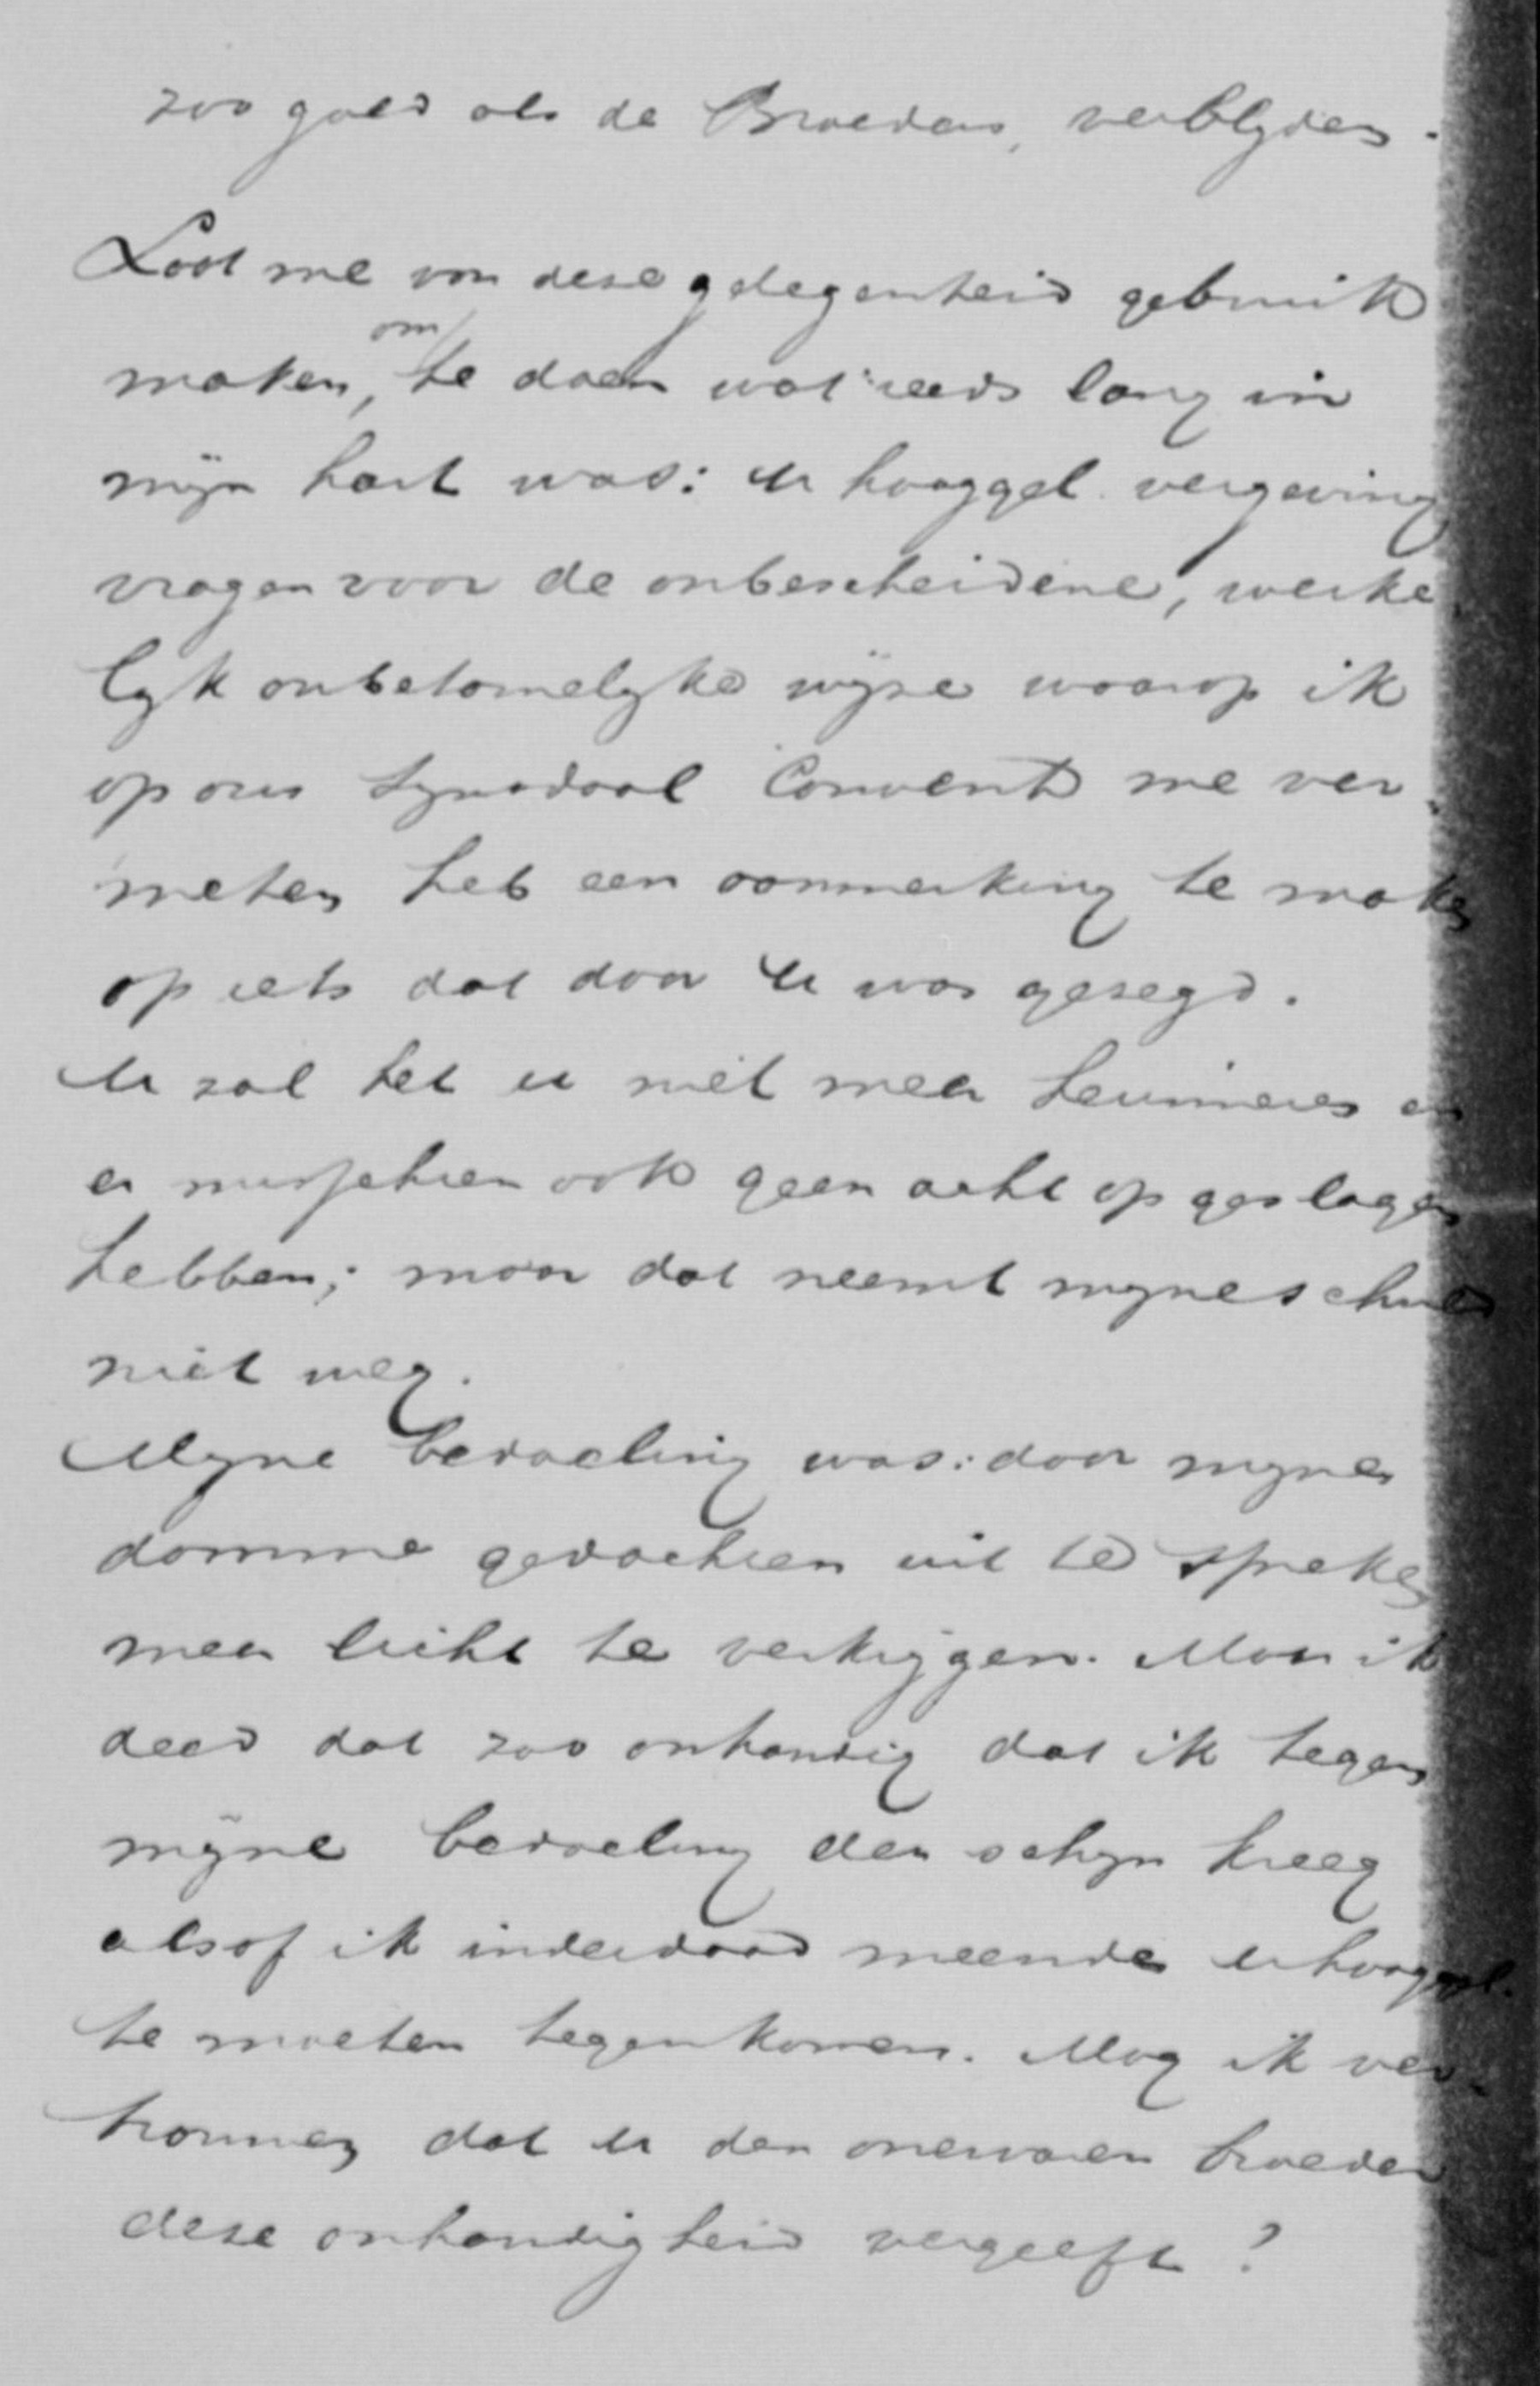 zoo goed als de Broeders, verblyden.
Laat me van deze gelegenheid gebruik
maken, om te doen wat reeds lang in
mijn hart was: U hooggel. vergeving
vragen voor de onbescheidene, werke-
lyk onbetamelyke wijze waarop ik
op ons Synodaal Convent me ver-
meten heb een aanmerking te maken
op iets dat door U was gezegd.
U zal het u niet meer herinneren en
er misschien ook geen acht op geslagen
hebben; maar dat neemt myne schuld
niet weg.
Myne bedoeling was: door myne
domme gedachten uit te spreken
meer licht te verkrijgen. Maar ik
deed dat zoo onhandig dat ik tegen
mijne bedoeling den schyn kreeg
alsof ik inderdaad meende U hooggel.
te moeten tegenkomen. Mag ik ver-
trouwen dat U den onervaren broeder
deze onhandigheid vergeeft?